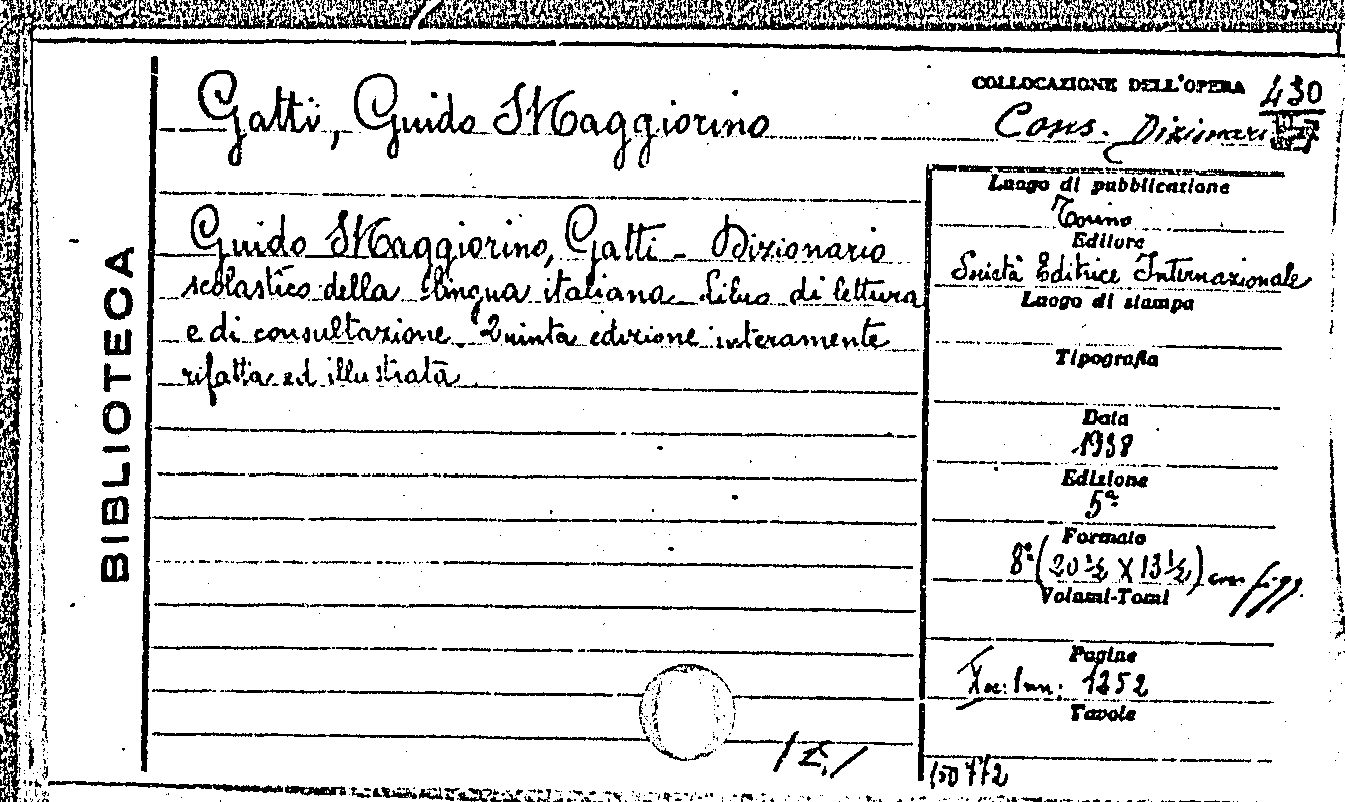 COLLOCAZIONE DELL'OPERA 430
Gatti, Guido Maggiorino
Cons. Dizionari
Guido Maggiorino, Gatti - Dizionario
scolastico della lingua italiana. Libro di lettura
e di consultazione. Quinta edizione interamente
rifatta ed illustrata
BIBLIOTECA
Luogo di pubblicazione
Torino
Editore
Società Editrice Internazionale
Luogo di stampa
Tipografia
Data
1938
Edizione
5ª
Formato
8° (20 ½ X 13 ½) con figg.
Volumi-Tomi
Pagine
1252
Tavole